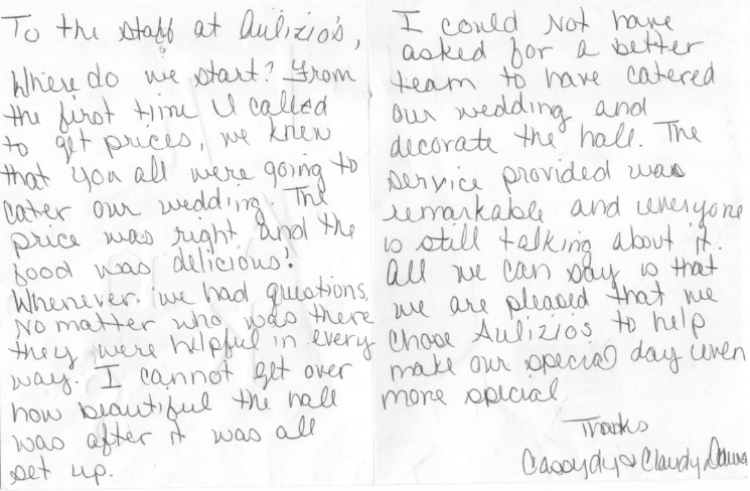 To the staff at Aulizio's,
Where do we start? From
the first time I called
to get prices, we knew
that you all were going to
cater our wedding. The
price was right and the
food was delicious!
Whenever we had questions,
No matter who was there
they were helpful in every
way. I cannot get over
how beautiful the hall
was after it was all
set up.
I could not have
asked for a better
team to have catered
our wedding and
decorate the hall. The
service provided was
remarkable and everyone
is still talking about it.
All we can say is that
we are pleased that we
chose Aulizios to help
make our special day even
more special.
Thanks
Cassydy & Claudy